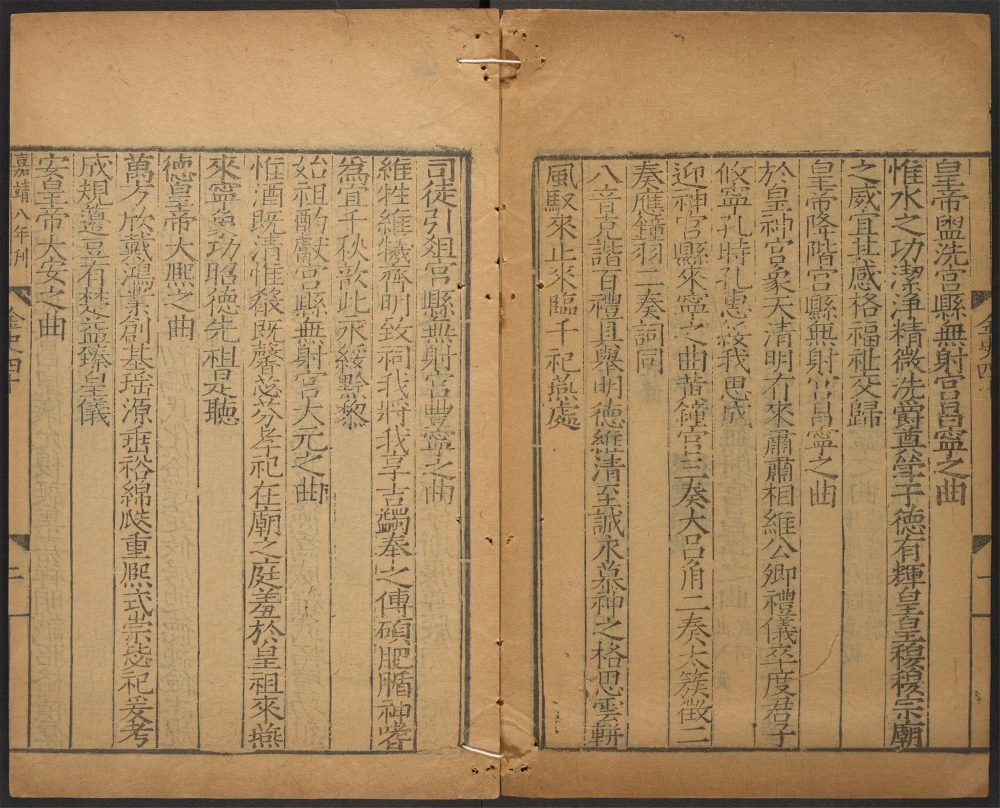 皇帝盥洗宮縣無射宮昌寧之曲
惟水之功潔淨精微洗爵奠斝于德有輝皇皇穆穆宗廟
之威宜其感格福祉交歸
皇帝降階宮縣無射宮昌寧之曲
於皇神宮象天清明有來肅肅相維公卿禮儀卒度君子
攸寧孔時孔惠綏我思成
迎神宮縣來寧之曲黃鐘宮三奏大呂角二奏太簇徵二
奏應鐘羽二奏詞同
八音克諧百禮具舉明德維清至誠永慕神之格思雲軿
風馭來止來臨千祀燕處
司徒引俎宮縣無射宮豐寧之曲
維牲維犧齊明致祠我將我享吉蠲奉之博碩肥腯神嗜
為宜千秋歆此永綏黔黎
始祖酌獻宮縣無射宮大元之曲
惟酒既清惟殽既馨苾芬孝祀在廟之庭羞於皇祖來燕
來寧象功昭德先祖是聽
德皇帝大熙之曲
萬方欣戴鴻業創基瑤源垂裕綿瓞重熙式崇毖祀爰考
成規籩豆有楚益臻皇儀
安皇帝大安之曲
嘉靖八年刊
金史四十